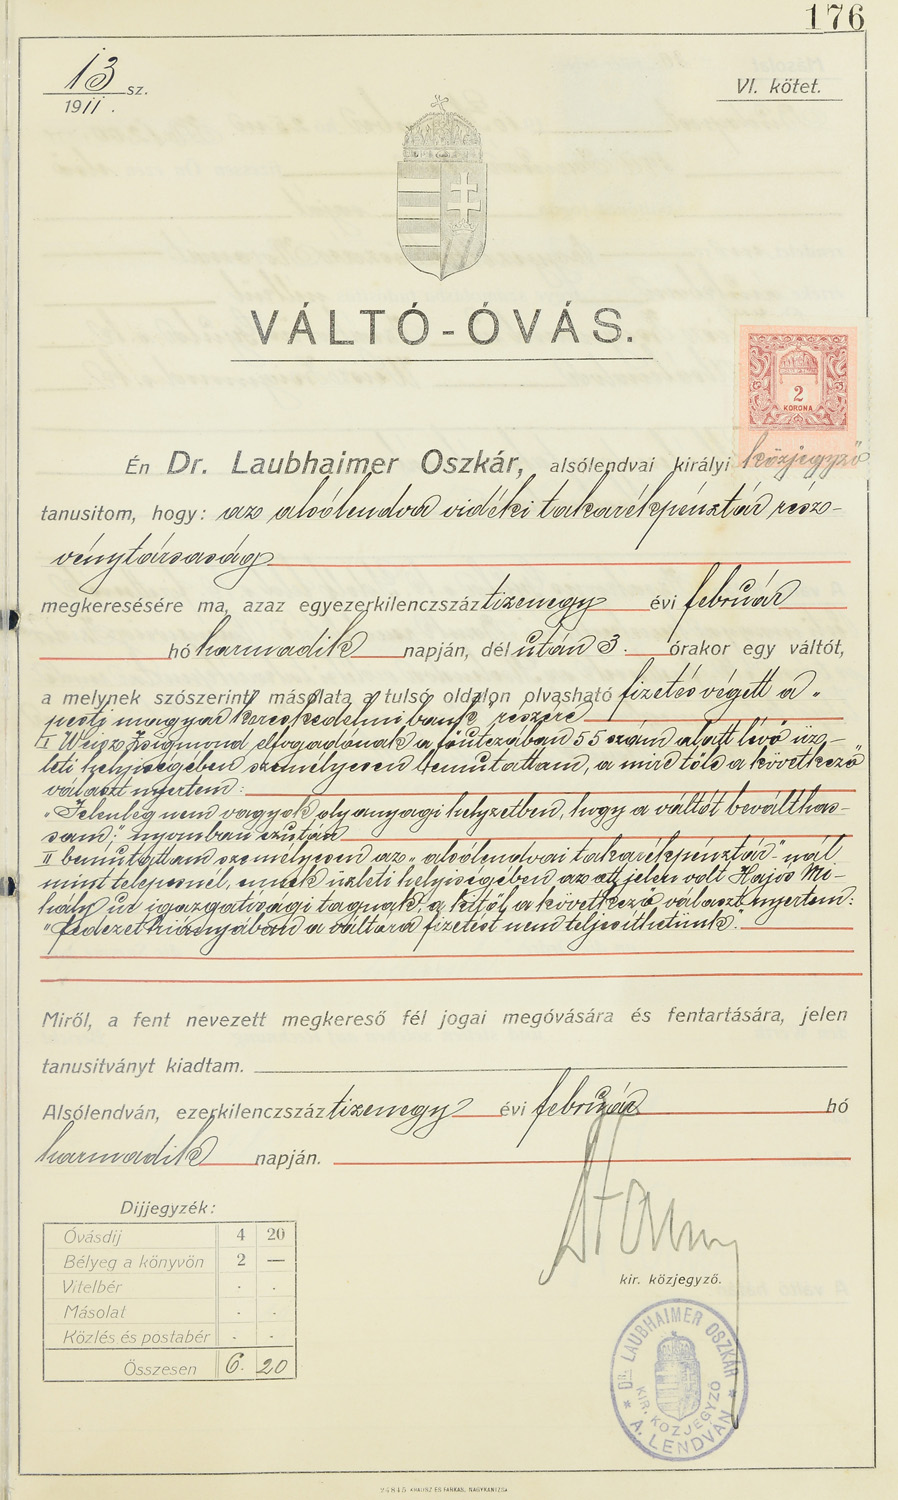 176
13 sz.
1911.
VI. kötet.
VÁLTÓ-ÓVÁS.
2
KORONA
Én Dr. Laubhaimer Oszkár, alsólendvai királyi közjegyző
tanusitom, hogy: az alsólendva vidéki takarékpénztár rész-
vénytársaság
megkeresésére ma, azaz egyezerkilenczszáz tizenegy évi február
hó harmadik napján, dél után 3. órakor egy váltót,
a melynek szószerinti másolata a tulsó oldalon olvasható fizetés végett a „
pesti magyar kereskedelmi bank" részére
I Weisz Zsigmond elfogadónak a főutczában 55 szám alatt lévő üz-
leti helyiségében személyesen bemutattam, a mire tőle a következő
választ nyertem:
„Jelenleg nem vagyok oly anyagi helyzetben, hogy a váltót beválthas-
sam;" nyomban ezután
II bemutattam személyesen az „alsólendvai takarékpénztár"-nál
mint telepesnél, ennek üzleti helyiségében az ott jelen volt Hajós Mi-
hály úr igazgatósági tagnak, a kitől a következő választ nyertem:
„fedezet hiányában a váltóra fizetést nem teljesíthetünk".
Miről, a fent nevezett megkereső fél jogai megóvására és fentartására, jelen
tanusitványt kiadtam.
Alsólendván, ezerkilenczszáz tizenegy évi február hó
harmadik napján.
kir. közjegyző.
Dijjegyzék:
Óvásdij 4 20
Bélyeg a könyvön 2 —
Vitelbér . .
Másolat . .
Közlés és postabér . .
Összesen 6. 20
* DR. LAUBHAIMER OSZKÁR *
KIR. KÖZJEGYZŐ
A. LENDVÁN
24845 KRAUSZ ÉS FARKAS, NAGYKANIZSA